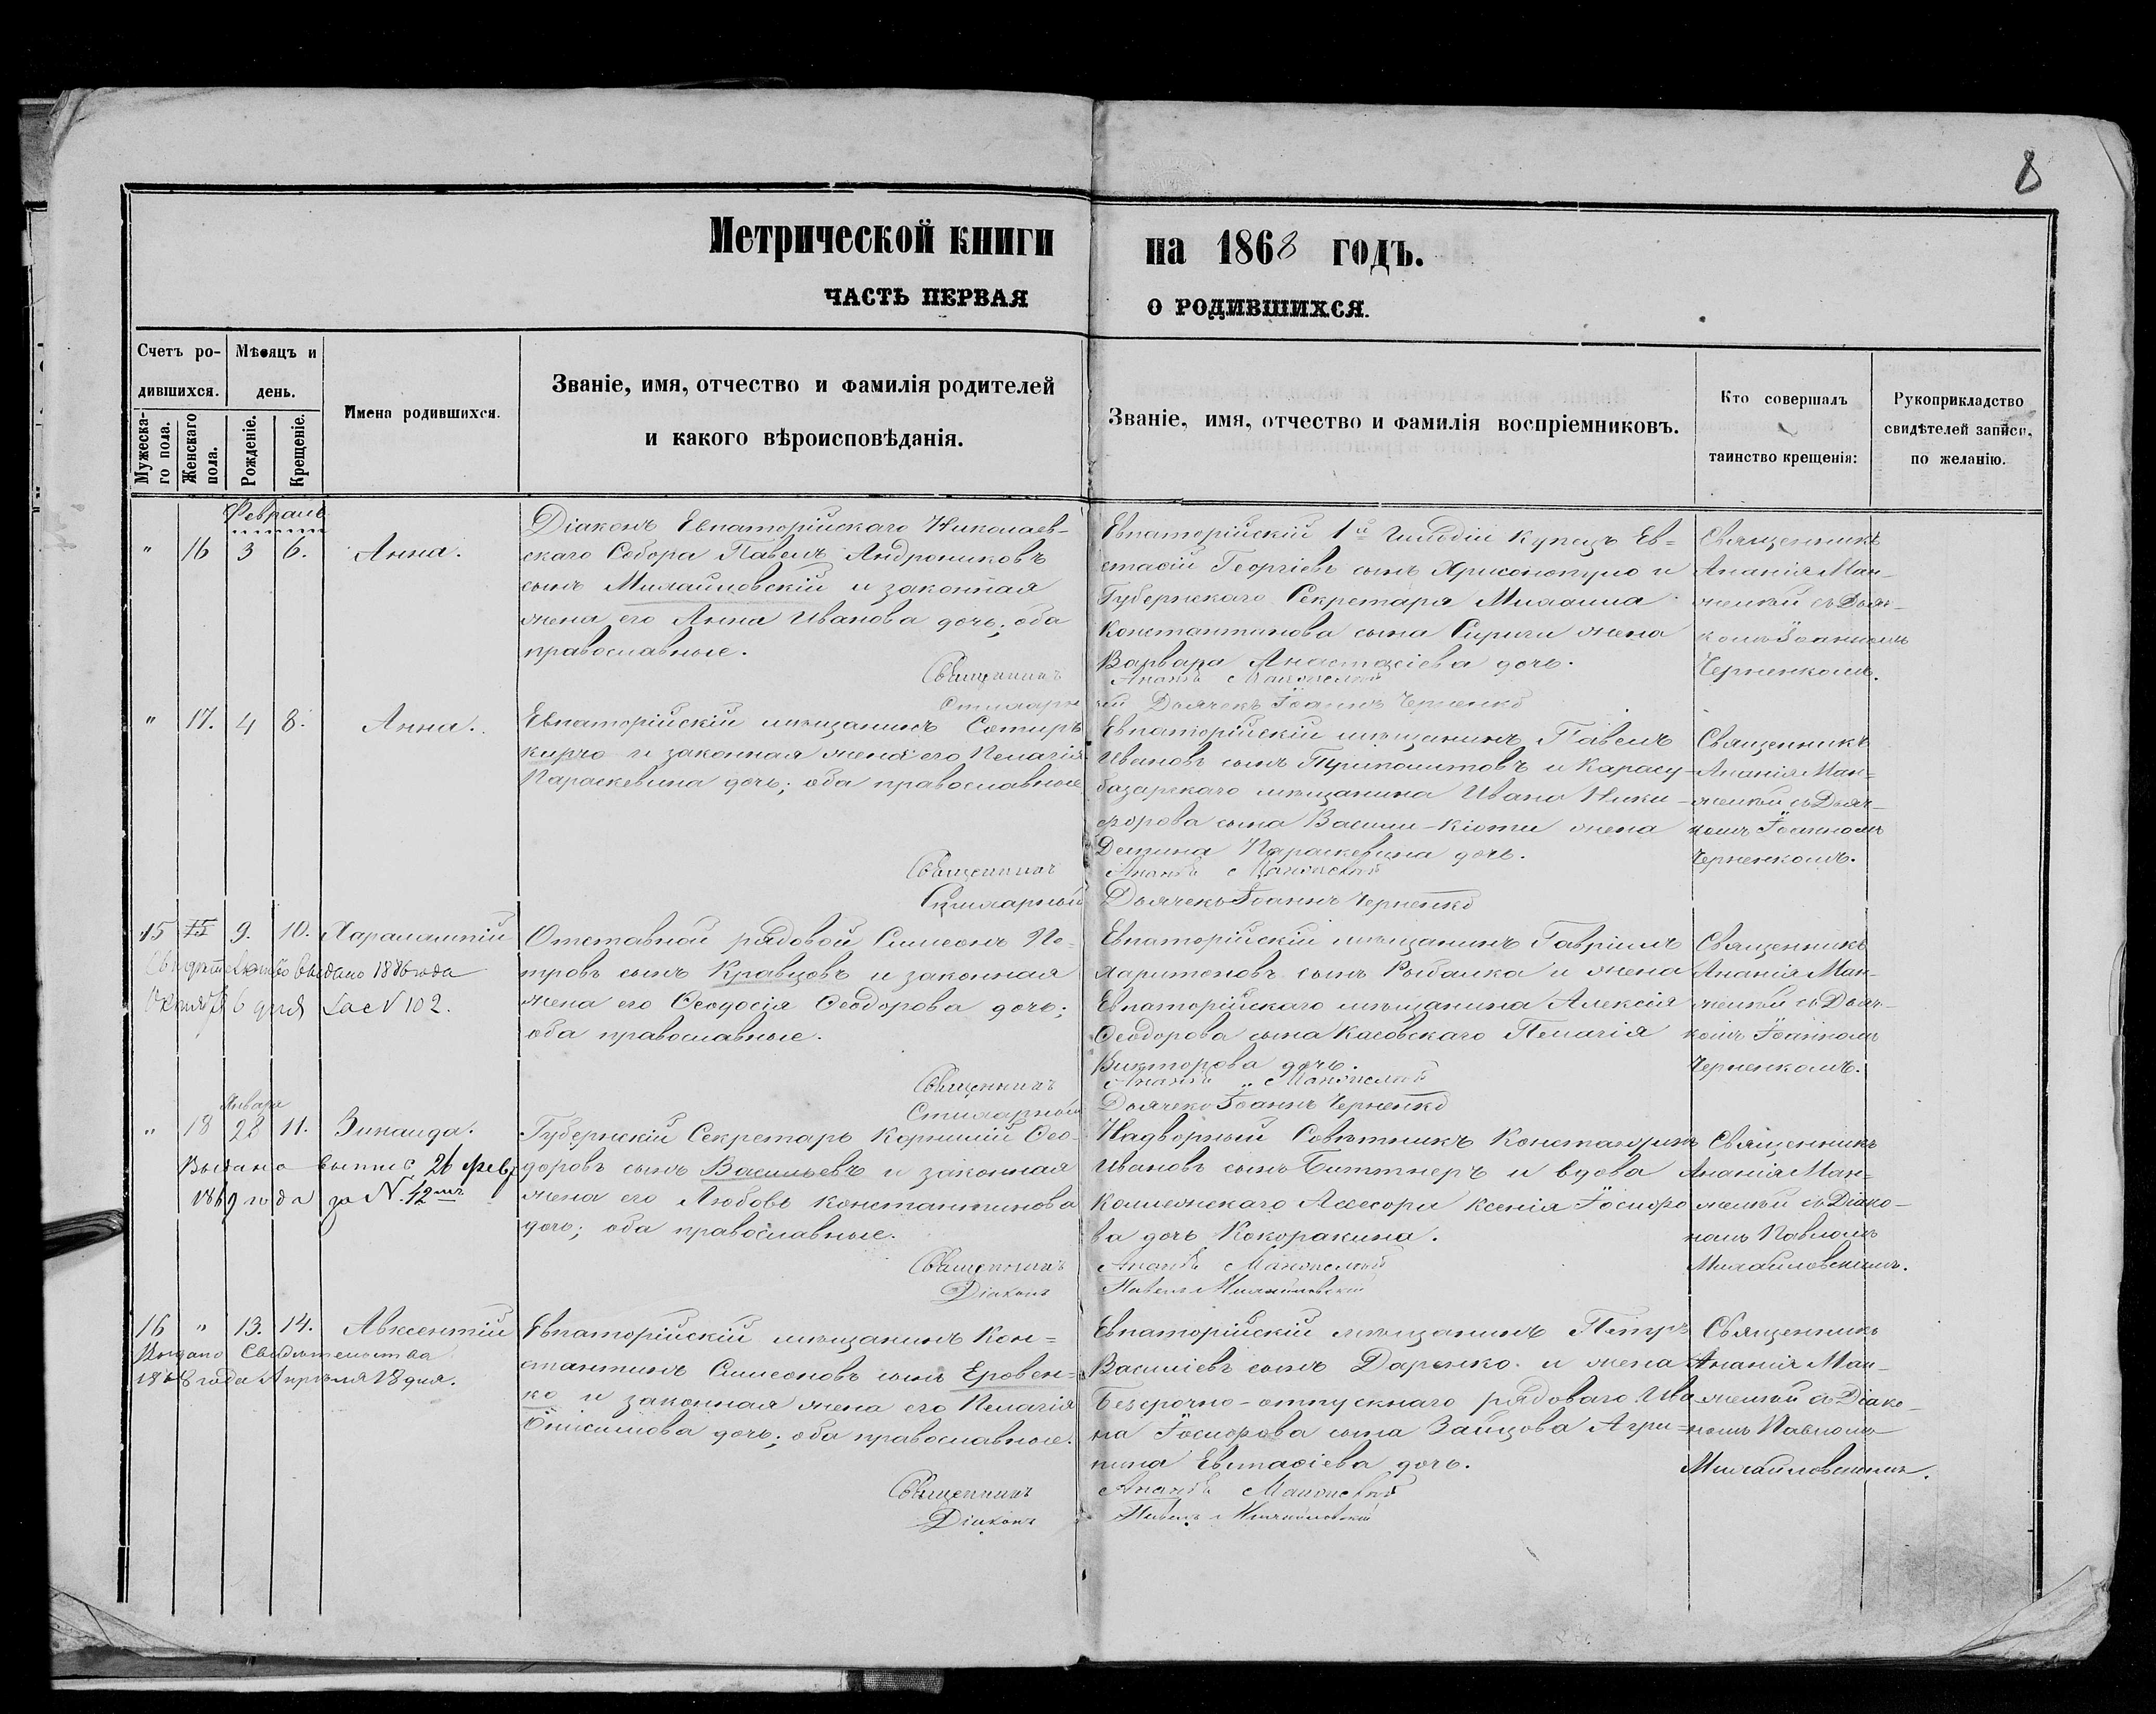 8
Метрической книги на 1868 годъ.
ЧАСТЬ ПЕРВАЯ О РОДИВШИХСЯ.
Счетъ ро-
дившихся.
Мужеска-
го пола.
Женскаго
пола.
Мѣсяцъ и
день.
Рожденіе.
Крещеніе.
Имена родившихся.
Званіе, имя, отчество и фамилія родителей
и какого вѣроисповѣданія.
Званіе, имя, отчество и фамилія воспріемниковъ.
Кто совершалъ
таинство крещенія:
Рукоприкладство
свидѣтелей записи,
по желанію.
Февраль
" 16 3 6. Анна.
Діаконъ Евпаторійскаго Николаев-
скаго Собора Павелъ Андрониковъ
сынъ Михайловскій и законная
жена его Анна Иванова дочь; оба
православные.
Евпаторійскій 1й Гильдіи Купецъ Ев=
стафій Георгіевъ сынъ Хрисоскуло и
Губернскаго Секретаря Михаила
Константинова сына жена
Варвара Анастасіева дочь.
Священникъ
Ананія Ман-
желей съ Дьяч-
комъ Іоанномъ
Черненкомъ.
Священникъ
Дьячекъ Іоаннъ Черненко
" 17. 4 8. Анна.
Евпаторійскій мѣщанинъ Сотиръ
Кирчо и законная жена его Пелагія
Параскевина дочь; оба православные
Евпаторійскій мѣщанинъ Павелъ
Ивановъ сынъ и Карасу-
базарскаго мѣщанина Ивана Ники-
форова сына Васили-Кіоти жена
Деспина Параскевина дочь.
Священникъ
Ананія Ман=
желей съ Дьяч-
комъ Іоанномъ
Черненкомъ.
Священникъ
Дьячекъ Іоаннъ Черненко
15 15 9. 10. Харалампій
Свидѣтельство выдано 1886 года
Октября 6 дня за N 102.
Отставной рядовой Симеонъ Пе-
тровъ сынъ Кравцовъ и законная
жена его Ѳеодосія Ѳеодорова дочь;
оба православные.
Евпаторійскій мѣщанинъ Гавріилъ
Харитоновъ сынъ Рыбалка и жена
Евпаторійскаго мѣщанина Алексія
Ѳеодорова сына Касовскаго Пелагія
Викторова дочь.
Священникъ
Ананія Ман-
желей съ Дьяч-
комъ Іоанномъ
Черненкомъ.
Священникъ
Дьячекъ Іоаннъ Черненко
Января
" 18 28 11. Зинаида.
Выдана выпис. 26 февр.
1869 года за N. 42мъ
Губернскій Секретарь Корнилій Ѳео-
доровъ сынъ Васильевъ и законная
жена его Любовь Константинова
дочь; оба православные.
Надворный Совѣтникъ Константинъ
Ивановъ сынъ Биттнеръ и вдова
Коллежскаго Ассесора Ксенія Іосифо
ва дочь Кокоракина.
Священникъ
Ананія Ман-
желей съ Діако-
номъ Павломъ
Михайловскимъ.
Священникъ
Діаконъ Павелъ Михайловскій
16 " 13. 14. Авксентій
Выдано Свидѣтельства
1868 года Апрѣля 18 дня.
Евпаторійскій мѣщанинъ Кон=
стантинъ Симеоновъ сынъ Еровен=
ко и законная жена его Пелагія
Онисимова дочь; оба православные.
Евпаторійскій мѣщанинъ Петръ
Василіевъ сынъ Даренко и жена
Безсрочно-отпускнаго рядоваго Ива
на Іосифова сына Зайцова Агри=
пина Евстафіева дочь.
Священникъ
Ананія Ман-
желей съ Діако-
номъ Павломъ
Михайловскимъ.
Священникъ
Діаконъ Павелъ Михайловскій